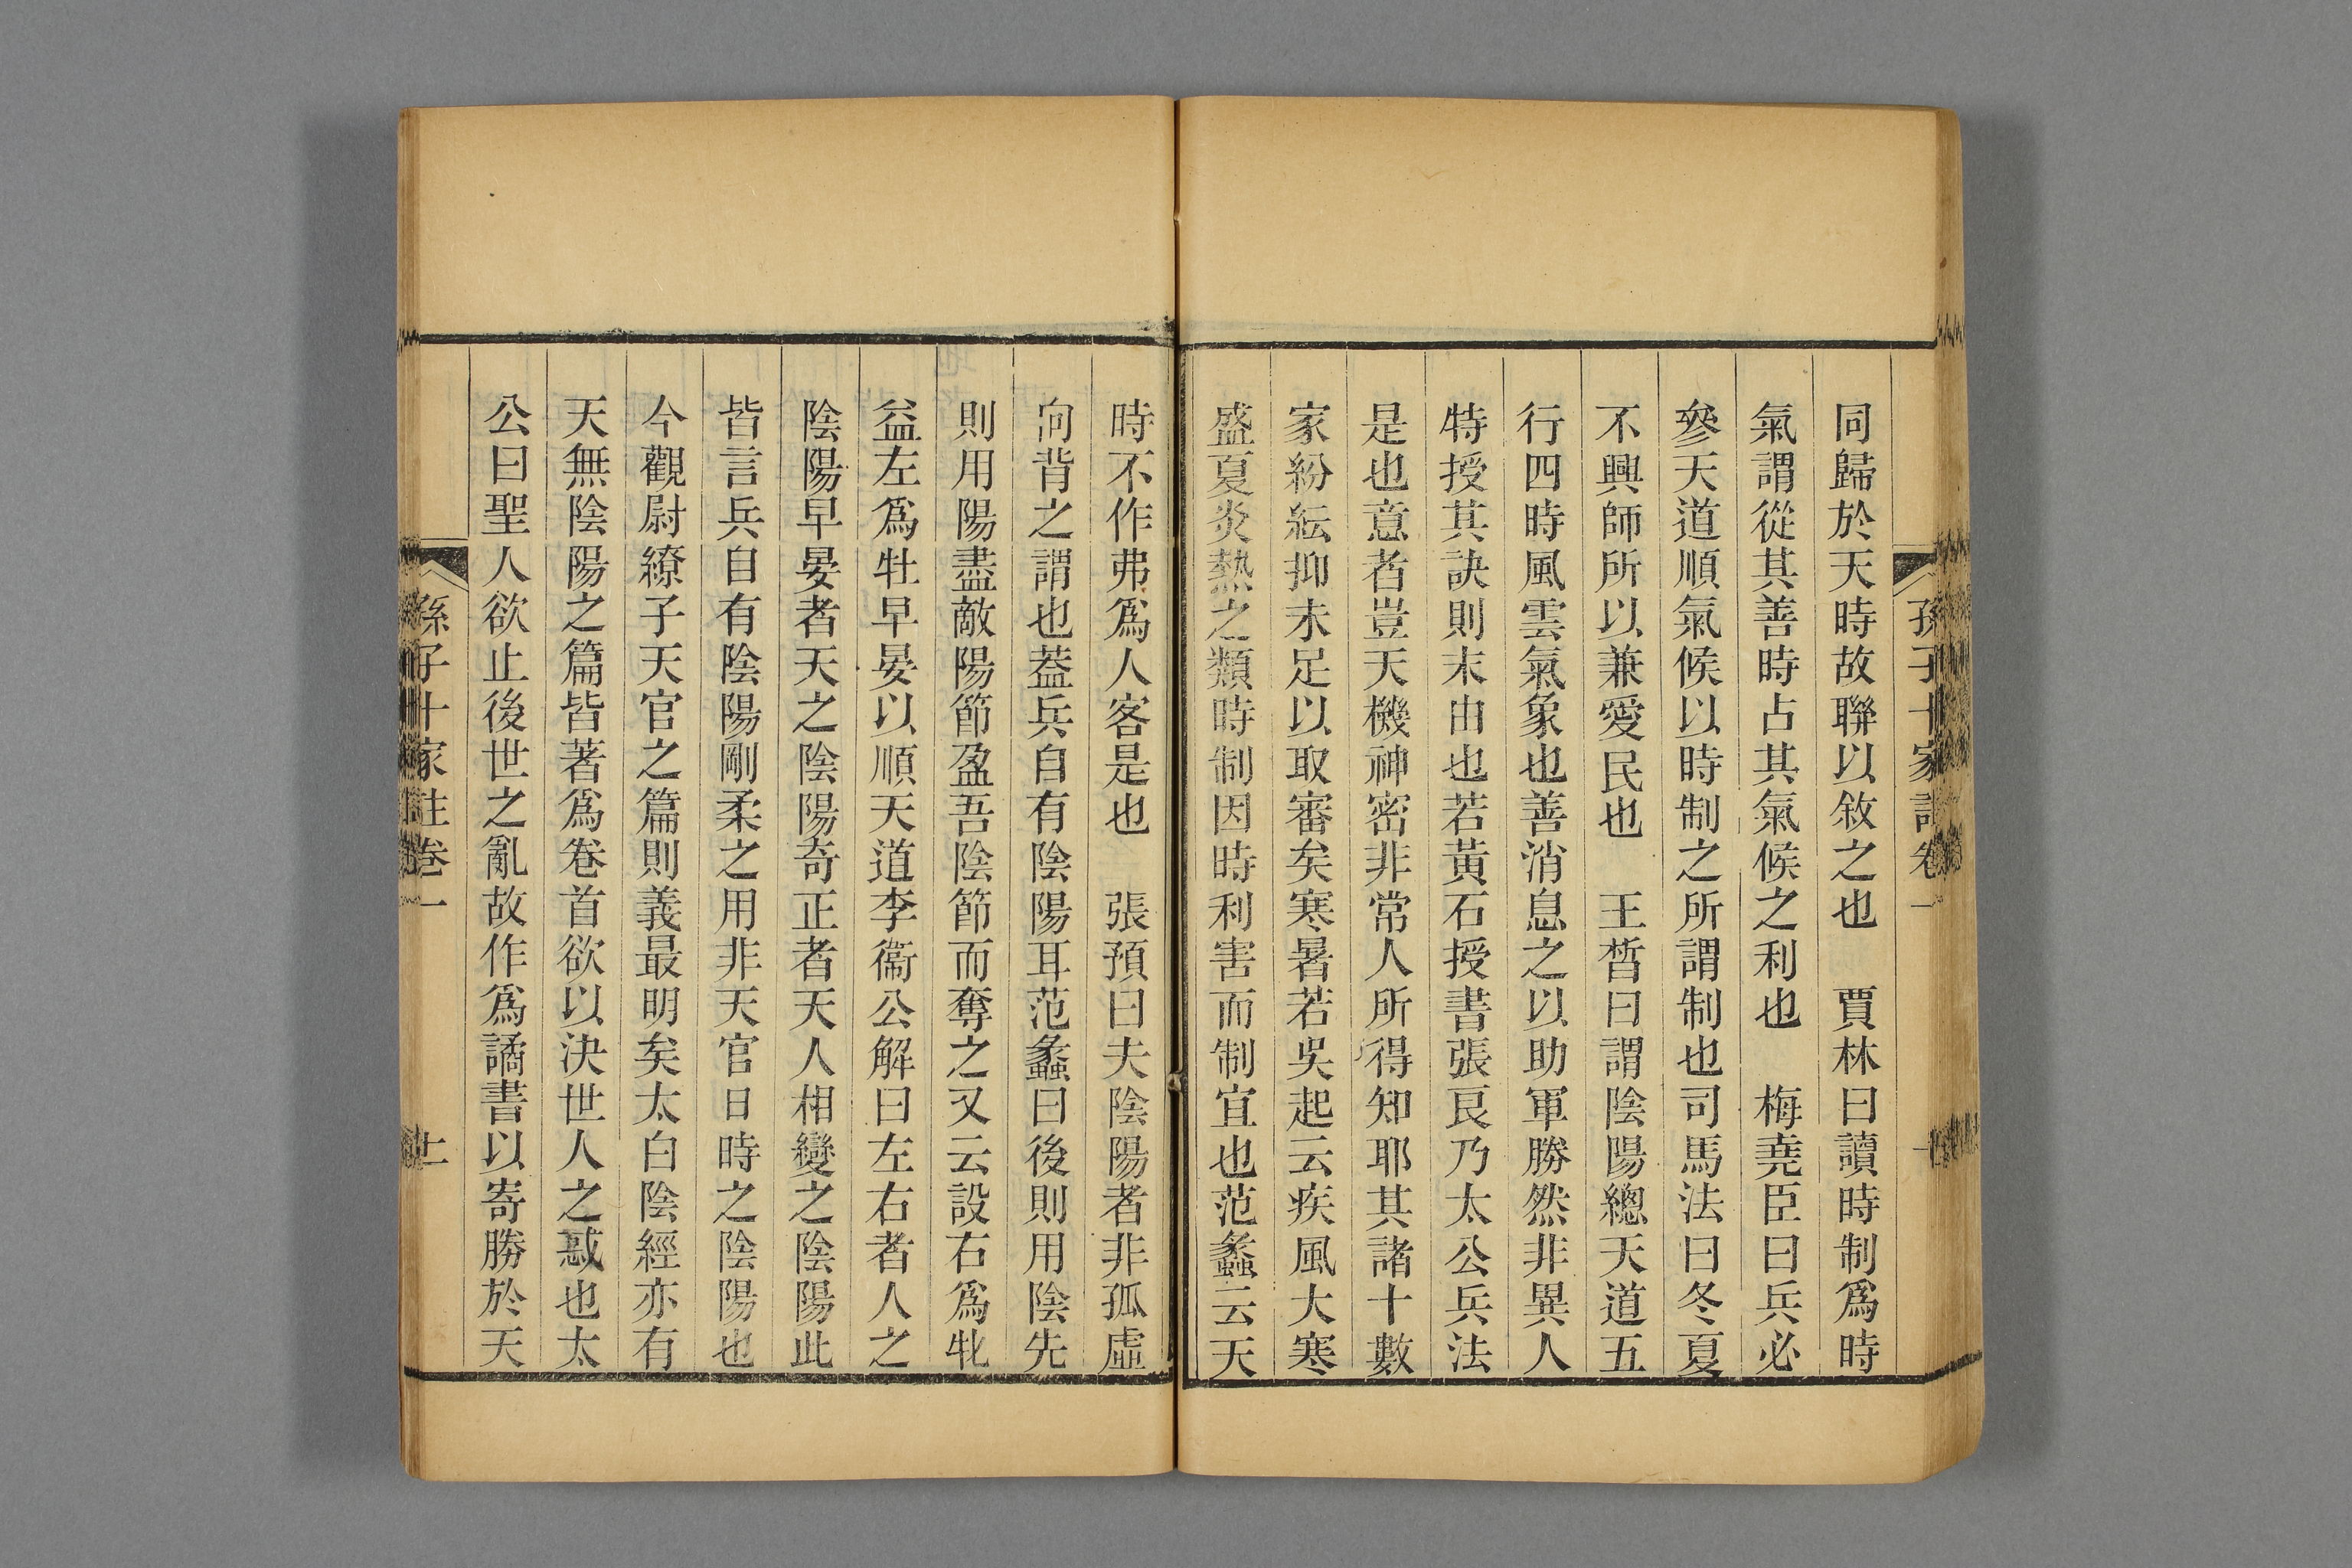 孫子十家註卷一
同歸於天時故聯以敘之也　賈林曰讀時制爲時
氣謂從其善時占其氣候之利也　梅堯臣曰兵必
參天道順氣候以時制之所謂制也司馬法曰冬夏
不興師所以兼愛民也　王晳曰謂陰陽總天道五
行四時風雲氣象也善消息之以助軍勝然非異人
特授其訣則末由也若黃石授書張良乃太公兵法
是也意者豈天機神密非常人所得知耶其諸十數
家紛紜抑未足以取審矣寒暑若吳起云疾風大寒
盛夏炎熱之類時制因時利害而制宜也范蠡云天
時不作弗爲人客是也　張預曰夫陰陽者非孤虛
向背之謂也葢兵自有陰陽耳范蠡曰後則用陰先
則用陽盡敵陽節盈吾陰節而奪之又云設右爲牝
益左爲牡早晏以順天道李衞公解曰左右者人之
陰陽早晏者天之陰陽奇正者天人相變之陰陽此
皆言兵自有陰陽剛柔之用非天官日時之陰陽也
今觀尉繚子天官之篇則義最明矣太白陰經亦有
天無陰陽之篇皆著爲卷首欲以決世人之惑也太
公曰聖人欲止後世之亂故作爲譎書以寄勝於天
孫子十家註卷一